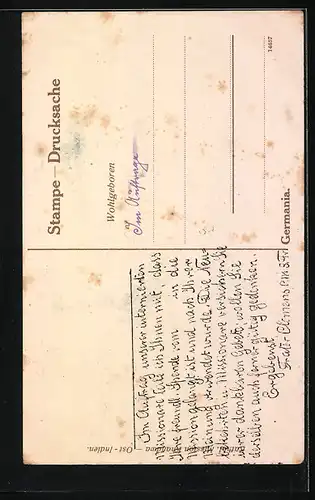 Stampe — Drucksache
Wohlgeboren
Im Auftrage
Germania.
14657
Im Auftrag unserer internierten
Missionare teile ich Ihnen mit, dass
Ihre freundl. Spende vom in die
Mission gelangt ist und nach Ihrer
Meinung verwendet wurde. Die
Missionare versichern Sie
ihrer dankbaren Gebete, wollen Sie
derselben auch ferner gütig gedenken.
Ergebenst
Ost-Indien.